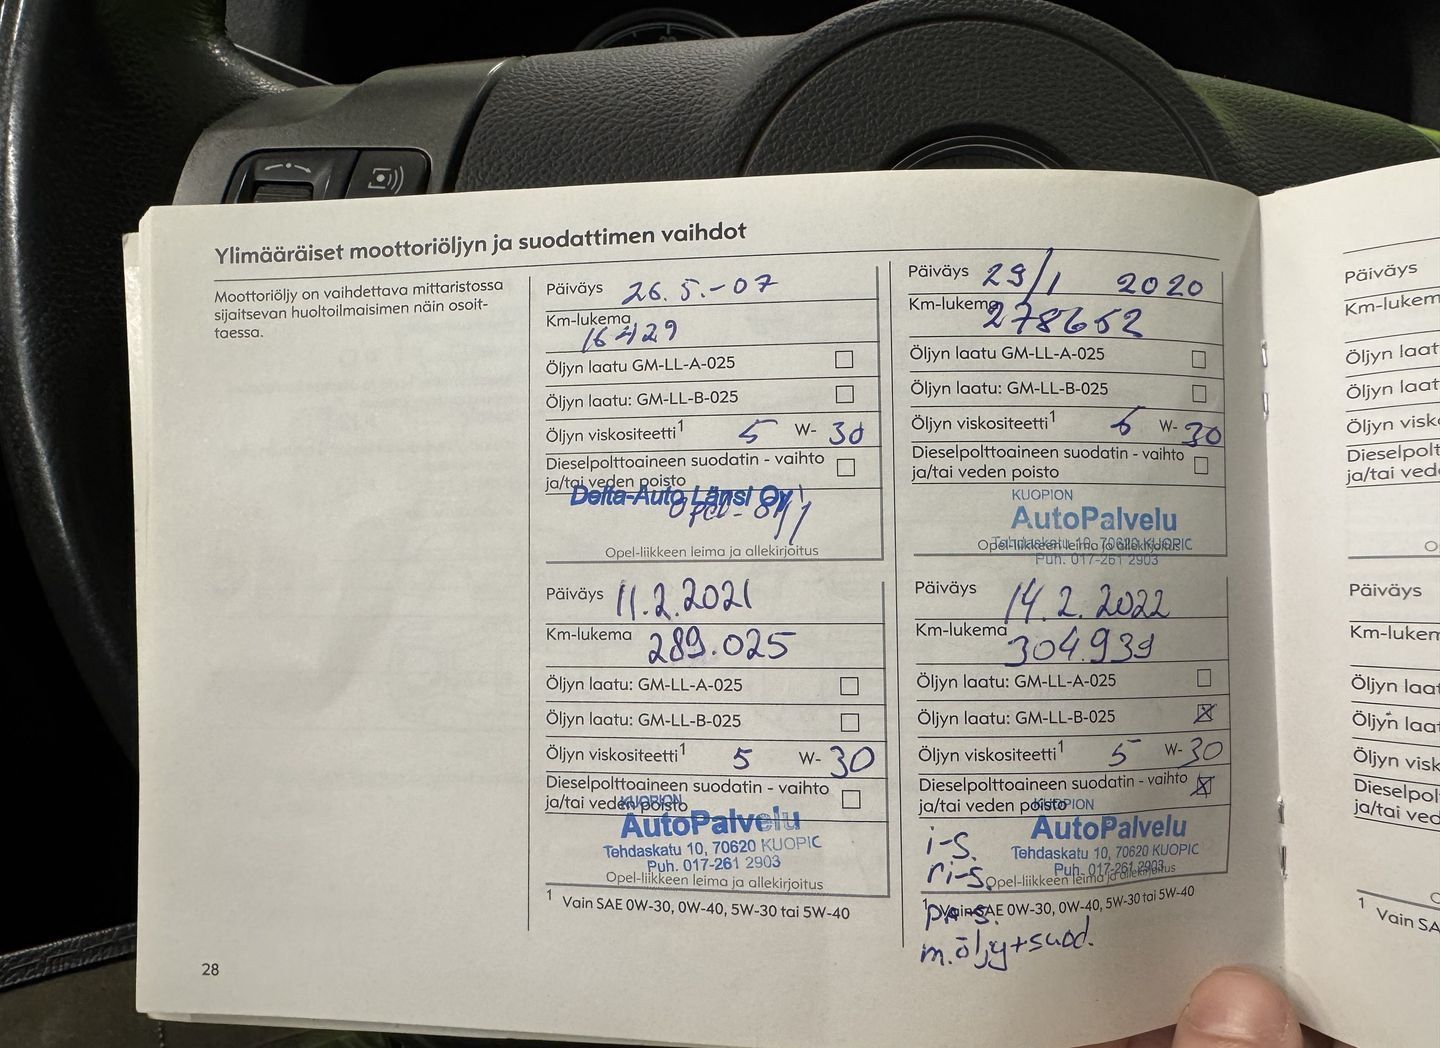 Ylimääräiset moottoriöljyn ja suodattimen vaihdot
Moottoriöljy on vaihdettava mittaristossa
sijaitsevan huoltoilmaisimen näin osoit-
taessa.
Päiväys 26.5.-07
Km-lukema
16429
Öljyn laatu GM-LL-A-025
Öljyn laatu: GM-LL-B-025
Öljyn viskositeetti1 5 W- 30
Dieselpolttoaineen suodatin - vaihto
ja/tai veden poisto
Delta-Auto Länsi Oy
Opel-liikkeen leima ja allekirjoitus
Päiväys 29/1 2020
Km-lukema
278652
Öljyn laatu GM-LL-A-025
Öljyn laatu: GM-LL-B-025
Öljyn viskositeetti1 5 W- 30
Dieselpolttoaineen suodatin - vaihto
ja/tai veden poisto
KUOPION
AutoPalvelu
Tehdaskatu 10, 70620 KUOPIO
Opel-liikkeen leima ja allekirjoitus
Puh. 017-261 2903
Päiväys 11.2.2021
Km-lukema 289.025
Öljyn laatu: GM-LL-A-025
Öljyn laatu: GM-LL-B-025
Öljyn viskositeetti1 5 W- 30
Dieselpolttoaineen suodatin - vaihto
ja/tai veden poisto
KUOPION
AutoPalvelu
Tehdaskatu 10, 70620 KUOPIO
Puh. 017-261 2903
Opel-liikkeen leima ja allekirjoitus
1 Vain SAE 0W-30, 0W-40, 5W-30 tai 5W-40
Päiväys 14.2.2022
Km-lukema 304.939
Öljyn laatu: GM-LL-A-025
Öljyn laatu: GM-LL-B-025
Öljyn viskositeetti1 5 W- 30
Dieselpolttoaineen suodatin - vaihto
ja/tai veden poisto
KUOPION
AutoPalvelu
Tehdaskatu 10, 70620 KUOPIO
Puh. 017-261 2903
i-s.
ri-s.
Opel-liikkeen leima ja allekirjoitus
1 Vain SAE 0W-30, 0W-40, 5W-30 tai 5W-40
m.öljy+suod.
28
Päiväys
Km-lukem
Öljyn laat
Öljyn laat
Öljyn visk
Dieselpolt
ja/tai ved
Päiväys
Km-luken
Öljyn laat
Öljyn laat
Öljyn visk
Dieselpol
ja/tai ved
1 Vain SA